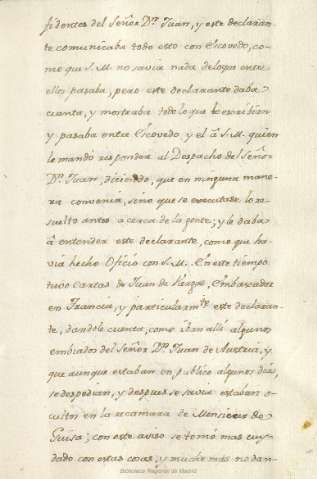 fidentes del Señor Dn. Juan, y este declaran-
te comunicaba todo esto con Escovedo, co-
mo que S. M. no savia nada de lo que entre
ellos pasaba, pero este declarante daba
cuenta, y mostraba todo lo que se escribian
y pasaba entre Escovedo y el á S. M. quien
le mando responder al Despacho del Señor
Dn. Juan, diciendo, que en ninguna mane-
ra convenia, sino que se executase lo re-
suelto antes a cerca de la gente; y le daba
á entender este declarante, como que ha-
via hecho Oficio con S. M. En este tiempo
tuvo cartas de Juan de Vargas, Embaxador
en Francia, y particularmte. este declaran-
te, dandole cuenta, como iban allí algunos
embiados del Señor Dn. Juan de Austria, y
que aunque estaban en publico algunos dias,
se despedian, y despues se savia estaban
ocultos en la recamara de Monsieur de
Guisa; con este aviso se tomó mas cuy-
dado con estas cosas; y mucho mas no dan-
Biblioteca Regional de Madrid